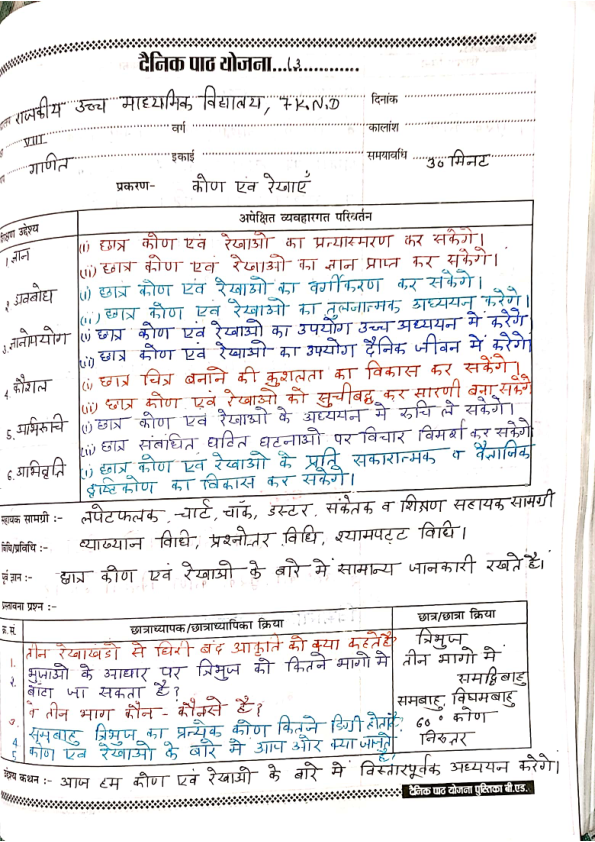 दैनिक पाठ योजना...13............
राजकीय उच्च माध्यमिक विद्यालय, 7 K.N.D दिनांक
VIII वर्ग कालांश
गणित इकाई समयावधि 30 मिनट
प्रकरण- कोण एवं रेखाएँ
शिक्षण उद्देश्य अपेक्षित व्यवहारगत परिवर्तन
1. ज्ञान (i) छात्र कोण एवं रेखाओ का प्रत्यास्मरण कर सकेगे।
(ii) छात्र कोण एवं रेखाओ का ज्ञान प्राप्त कर सकेगे।
2. अवबोध (i) छात्र कोण एवं रेखाओ का वर्गीकरण कर सकेगे।
(ii) छात्र कोण एवं रेखाओ का तुलनात्मक अध्ययन करेगे।
3. ज्ञानोपयोग (i) छात्र कोण एवं रेखाओ का उपयोग उच्च अध्ययन में करेगे
(ii) छात्र कोण एवं रेखाओ का उपयोग दैनिक जीवन में करेगे
4. कौशल (i) छात्र चित्र बनाने की कुशलता का विकास कर सकेंगे।
(ii) छात्र कोण एवं रेखाओ को सुचीबद्ध कर सारणी बना सकेगे
5. अभिरुचि (i) छात्र कोण एवं रेखाओ के अध्ययन में रुचि ले सकेगे।
(ii) छात्र संबंधित घटित घटनाओ पर विचार विमर्श कर सकेगे
6. अभिवृति (i) छात्र कोण एवं रेखाओ के प्रति सकारात्मक व वैज्ञानिक
दृष्टिकोण का विकास कर सकेगे।
सहायक सामग्री :- लपेटफलक, चार्ट, चॉक, डस्टर, संकेतक व शिक्षण सहायक सामग्री
विधि/प्रविधि :- व्याख्यान विधि, प्रश्नोतर विधि, श्यामपट्ट विधि।
पूर्व ज्ञान :- छात्र कोण एवं रेखाओ के बारे में सामान्य जानकारी रखते है।
प्रस्तावना प्रश्न :-
क्र. सं. छात्राध्यापक/छात्राध्यापिका क्रिया छात्र/छात्रा क्रिया
1. तीन रेखाखंडो से घिरी बंद आकृति को क्या कहते है त्रिभुज
2. भुजाओ के आधार पर त्रिभुज को कितने भागो मे तीन भागो में
बाँटा जा सकता है?
3. वे तीन भाग कौन - कौनसे है? समद्विबाहु समबाहु, विषमबाहु
4. समबाहु त्रिभुज का प्रत्येक कोण कितने डिग्री होता है? 60° कोण
5. कोण एवं रेखाओ के बारे मे आप और क्या जानते है? निरुतर
उद्देश्य कथन :- आज हम कोण एवं रेखाओ के बारे में विस्तारपूर्वक अध्ययन करेगे।
दैनिक पाठ योजना पुस्तिका बी.एड.